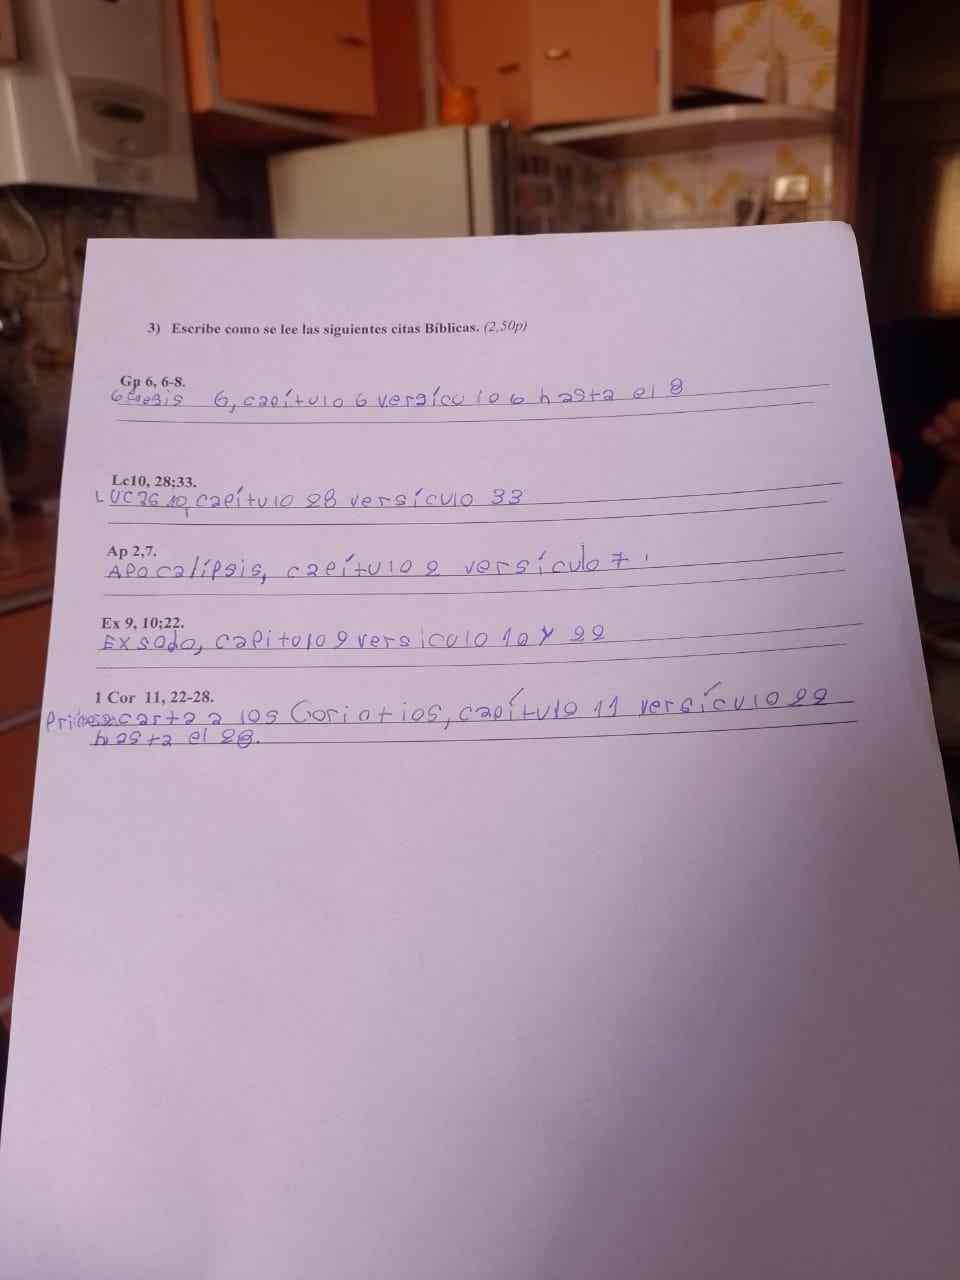 3) Escribe como se lee las siguientes citas Bíblicas. (2,50p)
Gp 6, 6-8.
6, capítulo 6 versículo 6 hasta el 8
Lc10, 28;33.
Lucas 10, capítulo 28 versículo 33
Ap 2,7.
Apocalípsis, capítulo 2 versículo 7
Ex 9, 10;22.
Exsodo, capitolo 9 versiculo 10 y 22
1 Cor 11, 22-28.
carta a los Coriotios, capítulo 11 versículo 22
hasta el 28.